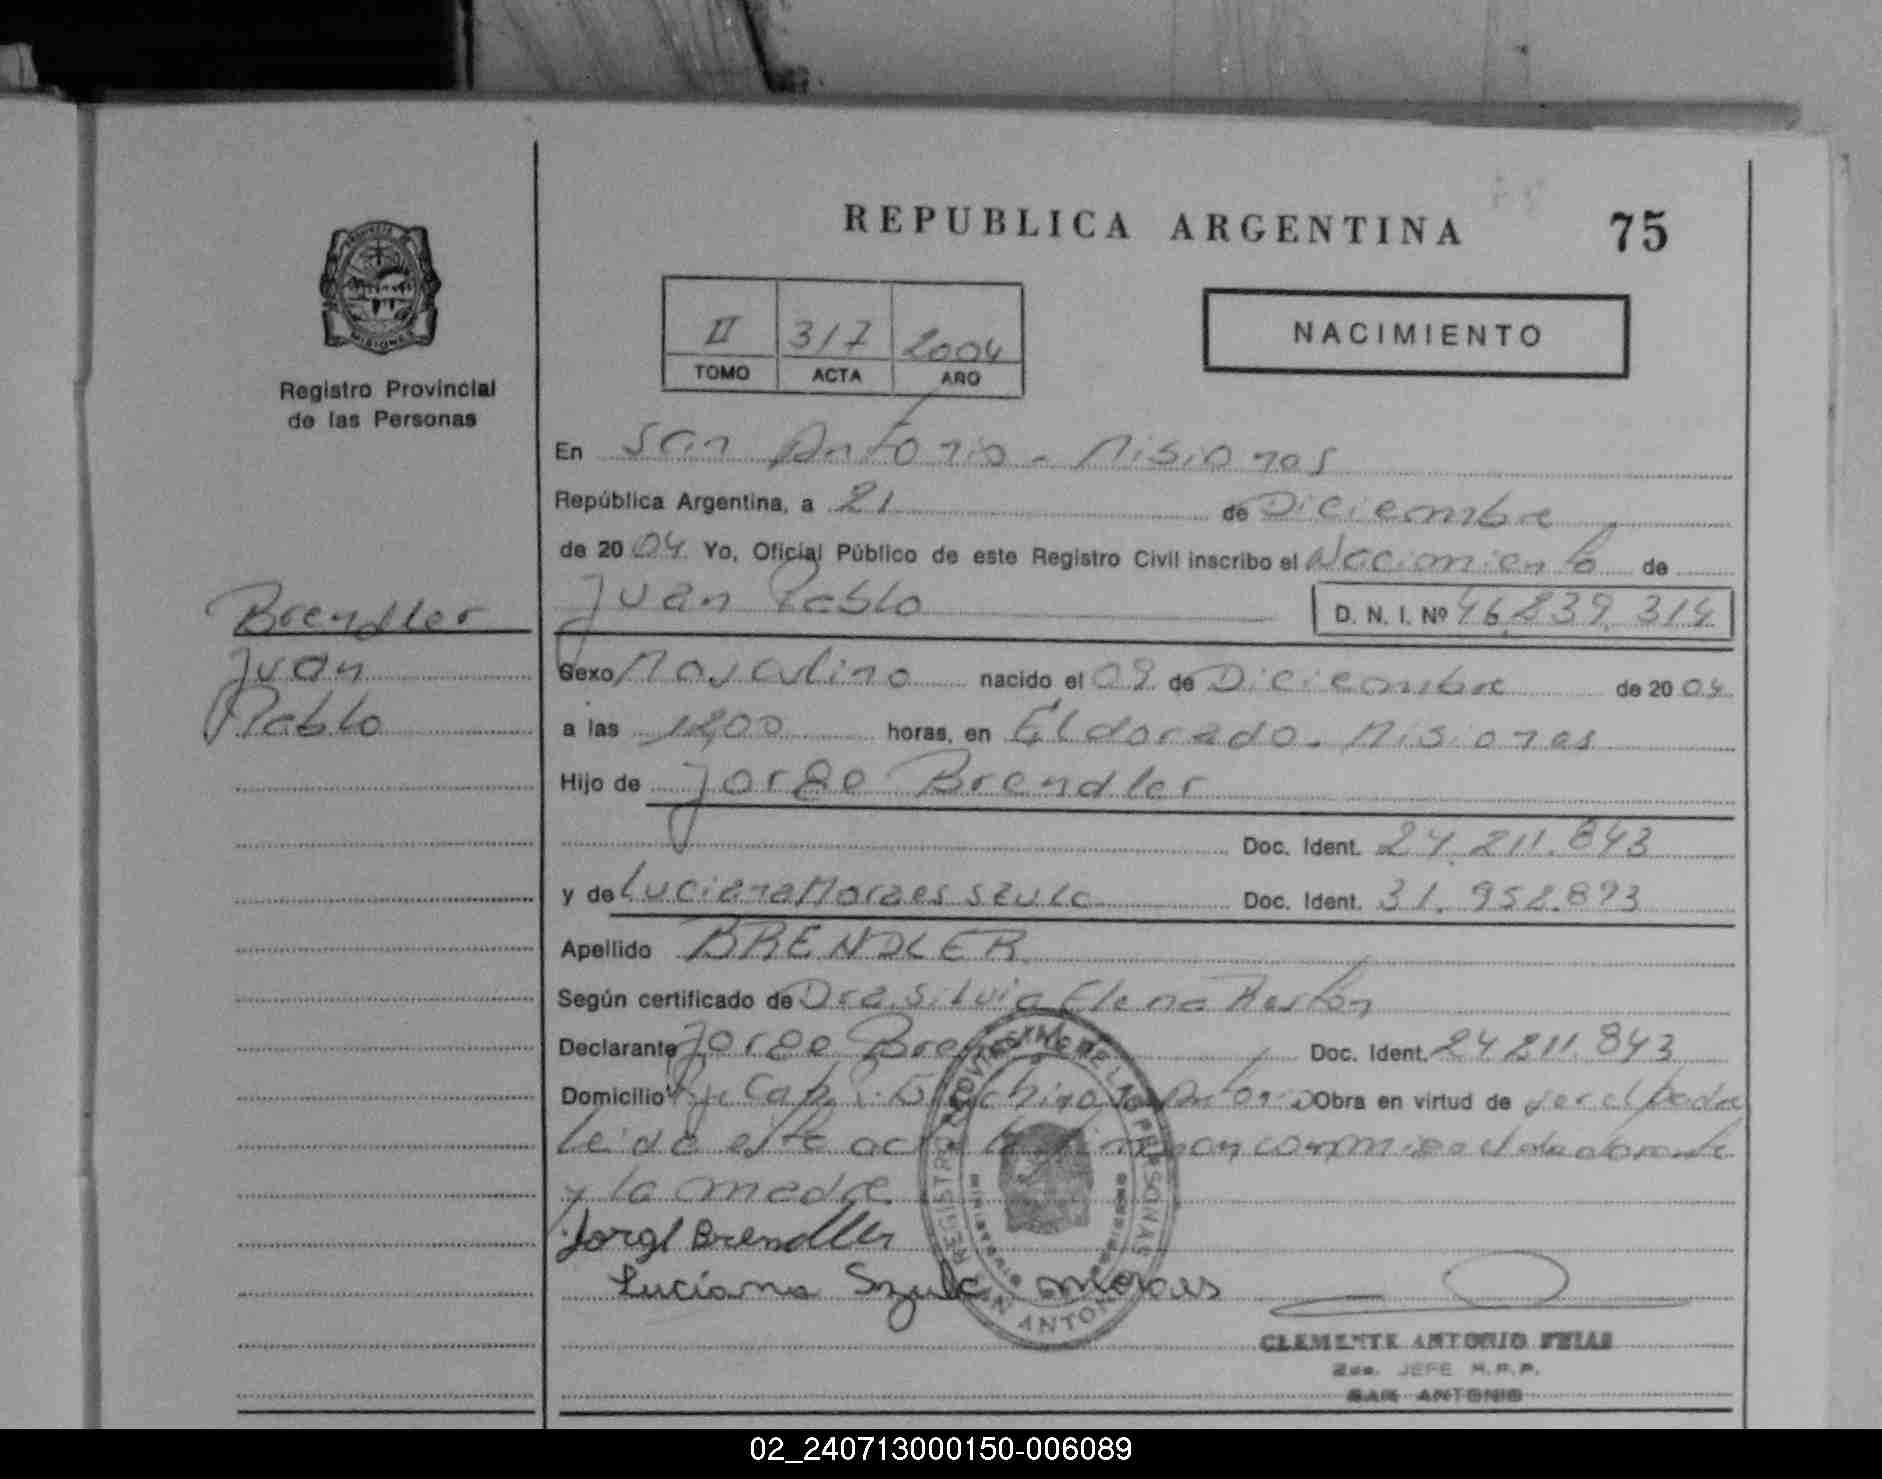 REPUBLICA ARGENTINA 75
PROVINCIA DE
MISIONES
Registro Provincial
de las Personas
II 317 2004
TOMO ACTA AÑO
NACIMIENTO
En San Antonio - Misiones
República Argentina, a 21 de Diciembre
de 2004 Yo, Oficial Público de este Registro Civil inscribo el Nacimiento de
Juan Pablo D. N. I. Nº 46.839.314
Brendler
Juan
Pablo
Sexo Masculino nacido el 09 de Diciembre de 2004
a las 1200 horas, en Eldorado - Misiones
Hijo de Jorge Brendler
Doc. Ident. 24.211.843
y de Luciana Moraes Szulc Doc. Ident. 31.958.893
Apellido BRENDLER
Según certificado de Dra. Silvia Elena
Declarante Jorge Doc. Ident. 24 211.843
Domicilio Antonio Obra en virtud de ser el padre
Leida este acta la firman conmigo el declarante
y la madre
Jorge Brendler
Luciana Szulc Moraes
REGISTRO PROVINCIAL DE LAS PERSONAS
MINISTERIO DE GOBIERNO
SAN ANTONIO
CLEMENTE ANTONIO FRIAS
2do. JEFE R.P.P.
SAN ANTONIO
02_240713000150-006089